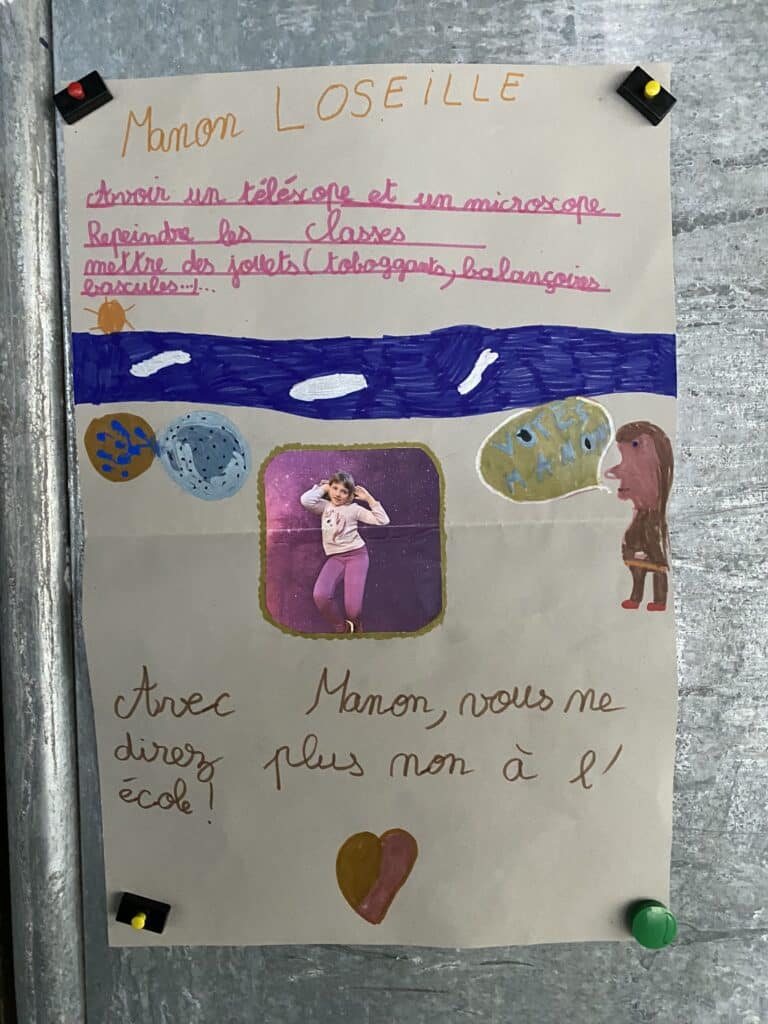 Manon LOSEILLE
Avoir un téléscope et un microscope
Repeindre les classes
mettre des jouets (toboggants, balançoires
bascules...)...
VOTEZ
MANON
Avec Manon, vous ne
direz plus non à l'
école!